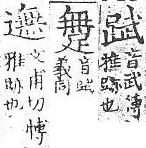 䟼音武愽
雅跡也
音䟼
義同
文甫切愽
雅跡也